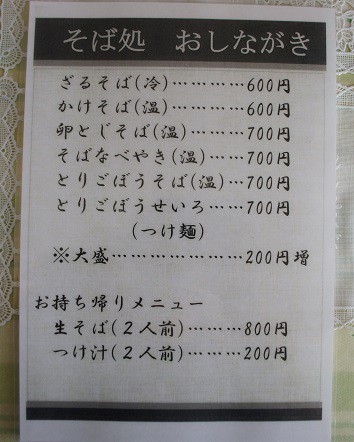 そば処　おしながき
ざるそば(冷)…………600円
かけそば(温)…………600円
卵とじそば(温)………700円
そばなべやき(温)……700円
とりごぼうそば(温)…700円
とりごぼうせいろ……700円
(つけ麺)
※大盛………………200円増
お持ち帰りメニュー
生そば(２人前)………800円
つけ汁(２人前)………200円